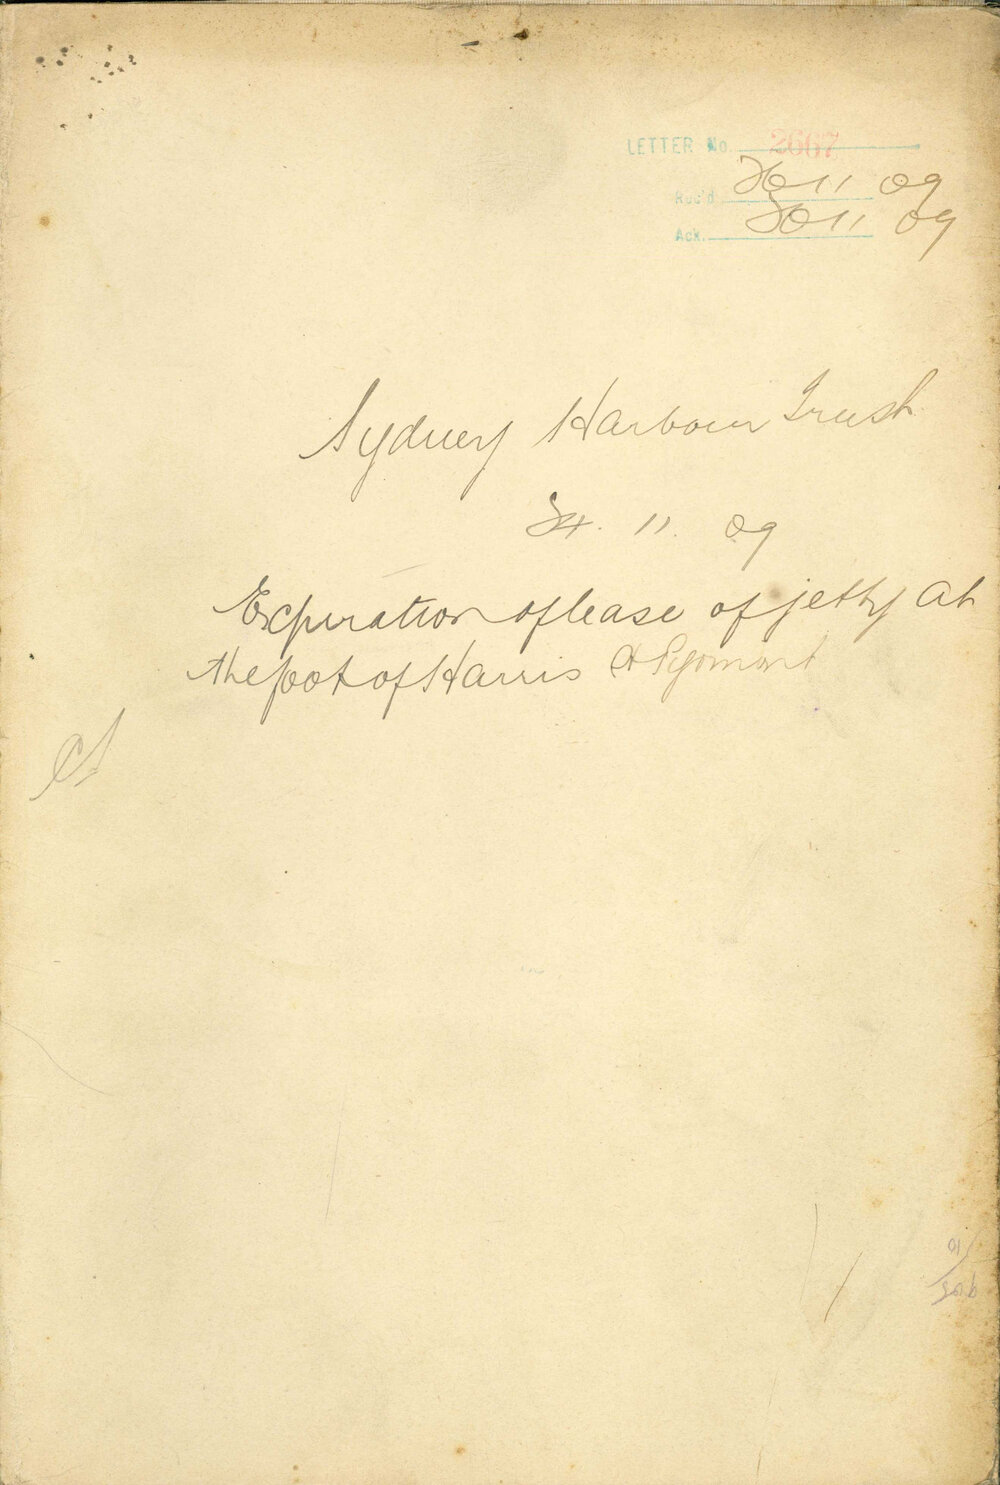 LETTER No. 2667
Rec'd 26 11 09
Ack. 30 11 09
Sydney Harbour Trust
24. 11. 09
Expiration of lease of jetty at
the foot of Harris St Pyrmont